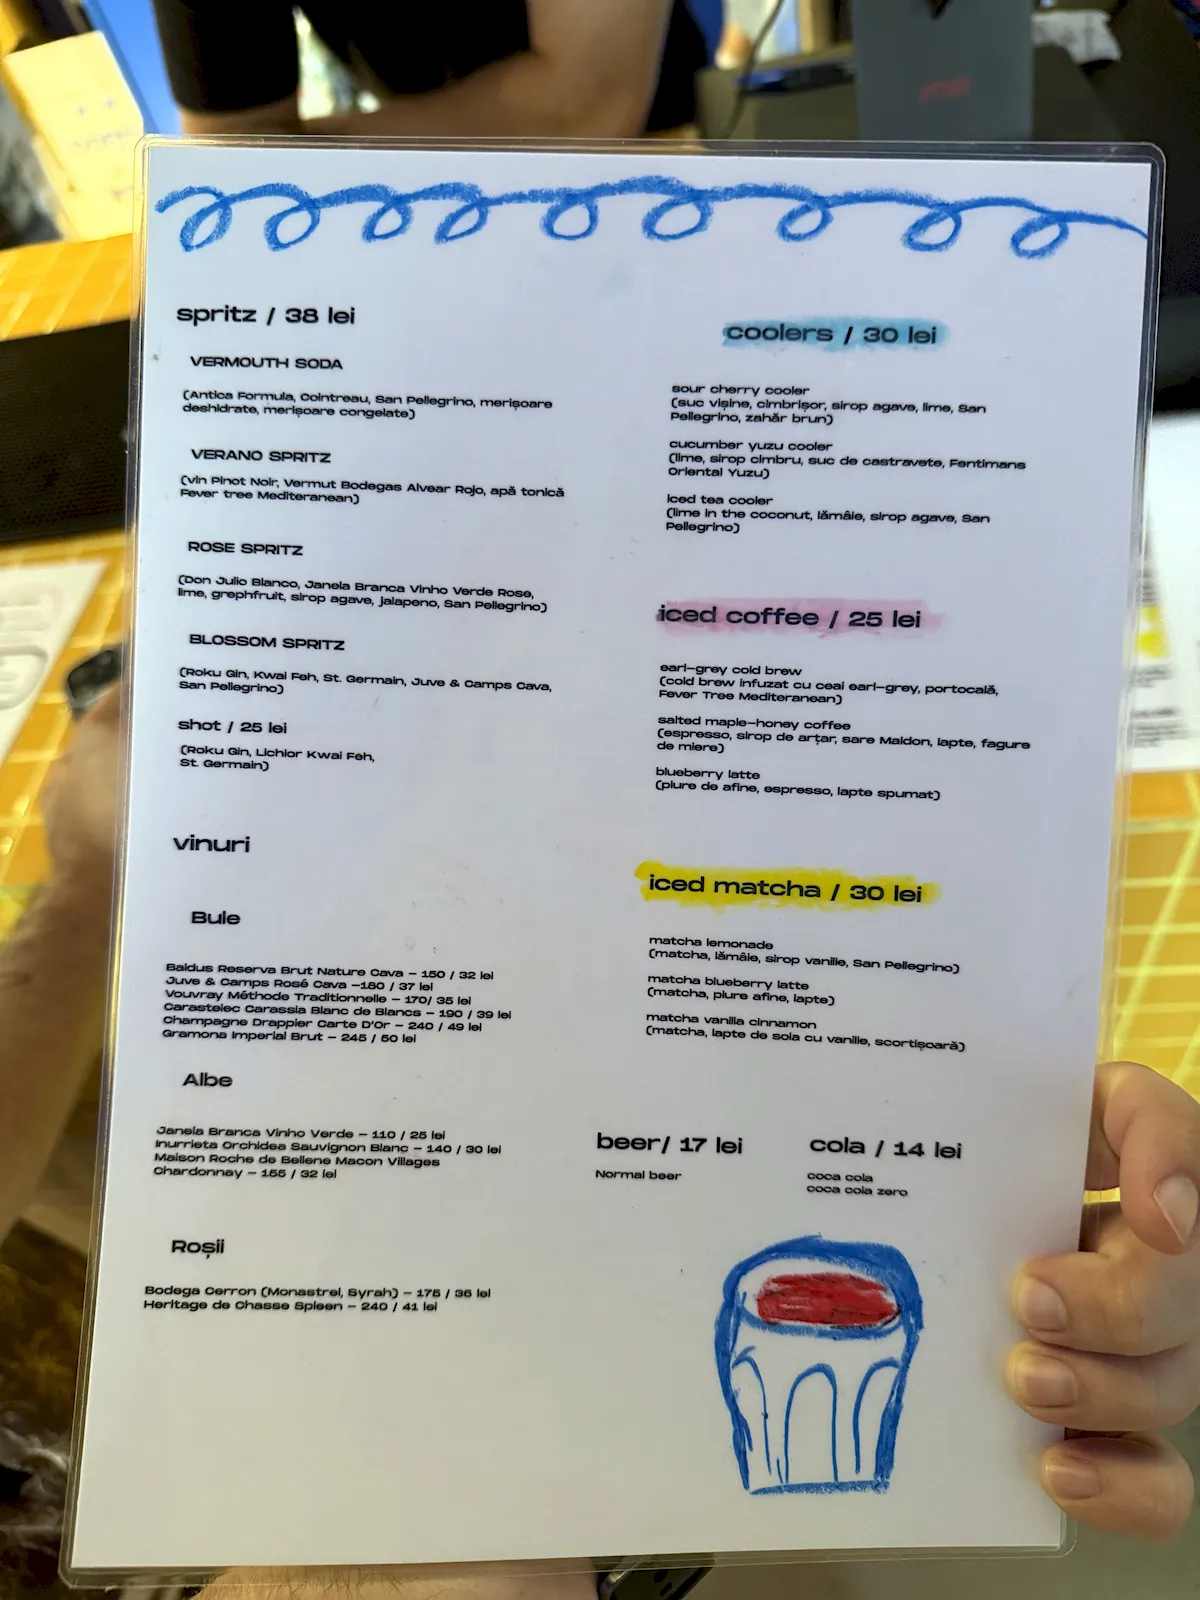 spritz / 38 lei
VERMOUTH SODA
(Antica Formula, Cointreau, San Pellegrino, merișoare
deshidrate, merișoare congelate)
VERANO SPRITZ
(vin Pinot Noir, Vermut Bodegas Alvear Rojo, apă tonică
Fever tree Mediteranean)
ROSE SPRITZ
(Don Julio Blanco, Janela Branca Vinho Verde Rose,
lime, grephfruit, sirop agave, jalapeno, San Pellegrino)
BLOSSOM SPRITZ
(Roku Gin, Kwai Feh, St. Germain, Juve & Camps Cava,
San Pellegrino)
shot / 25 lei
(Roku Gin, Lichior Kwai Feh,
St. Germain)
vinuri
Bule
Baldus Reserva Brut Nature Cava – 150 / 32 lei
Juve & Camps Rosé Cava –180 / 37 lei
Vouvray Méthode Traditionnelle – 170/ 35 lei
Carastelec Carassia Blanc de Blancs – 190 / 39 lei
Champagne Drappier Carte D'Or – 240 / 49 lei
Gramona Imperial Brut – 245 / 50 lei
Albe
Janela Branca Vinho Verde – 110 / 25 lei
Inurrieta Orchidea Sauvignon Blanc – 140 / 30 lei
Maison Roche de Bellene Macon Villages
Chardonnay – 155 / 32 lei
Roșii
Bodega Cerron (Monastrel, Syrah) – 175 / 36 lei
Heritage de Chasse Spleen – 240 / 41 lei
coolers / 30 lei
sour cherry cooler
(suc vișine, cimbrișor, sirop agave, lime, San
Pellegrino, zahăr brun)
cucumber yuzu cooler
(lime, sirop cimbru, suc de castravete, Fentimans
Oriental Yuzu)
iced tea cooler
(lime in the coconut, lămâie, sirop agave, San
Pellegrino)
iced coffee / 25 lei
earl-grey cold brew
(cold brew infuzat cu ceai earl-grey, portocală,
Fever Tree Mediteranean)
salted maple-honey coffee
(espresso, sirop de arțar, sare Maldon, lapte, fagure
de miere)
blueberry latte
(piure de afine, espresso, lapte spumat)
iced matcha / 30 lei
matcha lemonade
(matcha, lămâie, sirop vanilie, San Pellegrino)
matcha blueberry latte
(matcha, piure afine, lapte)
matcha vanilla cinnamon
(matcha, lapte de soia cu vanilie, scortișoară)
beer/ 17 lei
Normal beer
cola / 14 lei
coca cola
coca cola zero